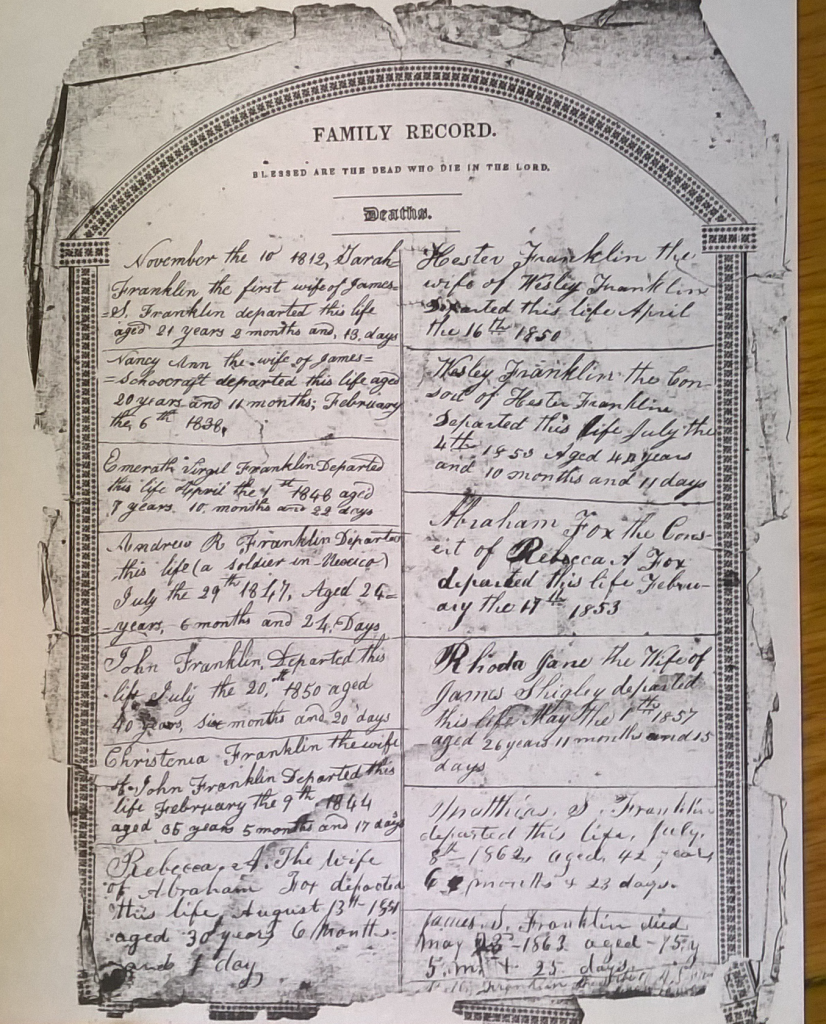 FAMILY RECORD.
BLESSED ARE THE DEAD WHO DIE IN THE LORD.
Deaths.
November the 10 1812, Sarah
Franklin the first wife of James=
=S. Franklin departed this life
aged 21 years 2 months and, 13, days
Nancy Ann the wife of James=
=Schoocraft departed this life aged
20 years and 11 months; February
the, 6 th 1838,
Emerath Virgil Franklin Departed
this life April the 1st 1846 aged
7 years 10 months and 22 days
Andrew R Franklin Departed
this life (a soldier in Mexico)
July the 29th 1847, Aged 24=
=years, 6 months and 24, Days
John Franklin, Departed this
life July the 20,th 1850 aged
40 years, six months and 20 days
Christenia Franklin the wife
of John Franklin Departed this
life Frebruary the 9th 1844
aged 35 years 5 months and 17 days
Rebecca, A. The wife
of Abraham Fox departed
this life August 13th
aged 30 years 6 months
and 1 day
Hester Franklin the
wife of Wesley Franklin
Departed this life April
the 16th 1850
Wesley Franklin the Con
sort of Hester Franklin
Departed this life July the
4th 1853 Aged years
and 10 months and 11 days
Abraham Fox the Cons
ort of Rebecca A Fox
departed this life Febru-
ary the 17th 1853
Rhoda Jane the Wife of
James Shigley departed
this life May the 1th 1857
aged 26 years 11 months and 15
days
S. Franklin
departed this life, July,
8th 1862, aged, 42 years
6 months + 23 days.
James, S. Franklin died
may -1863 aged -75 y
5. m. + 25 days.